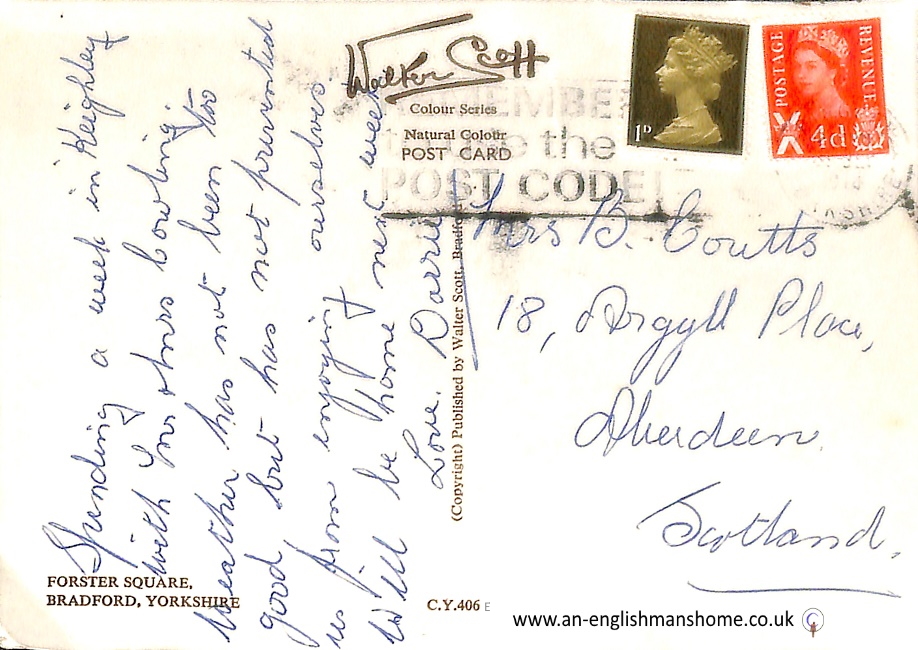 Spending a week in Keighley
with Mr & Mrs Cowling.
Weather has not been too
good but has not prevented
us from enjoying ourselves
Will be home next week
Love. Darrie
Walter Scott
Colour Series
Natural Colour
POST CARD
REMEMBER
to use the
POST CODE
1D
POSTAGE
REVENUE
4d
Mrs B. Coutts
18, Argyll Place,
Aberdeen.
Scotland.
(Copyright) Published by Walter Scott, Bradford
FORSTER SQUARE,
BRADFORD, YORKSHIRE
C.Y.406 E
www.an-englishmanshome.co.uk